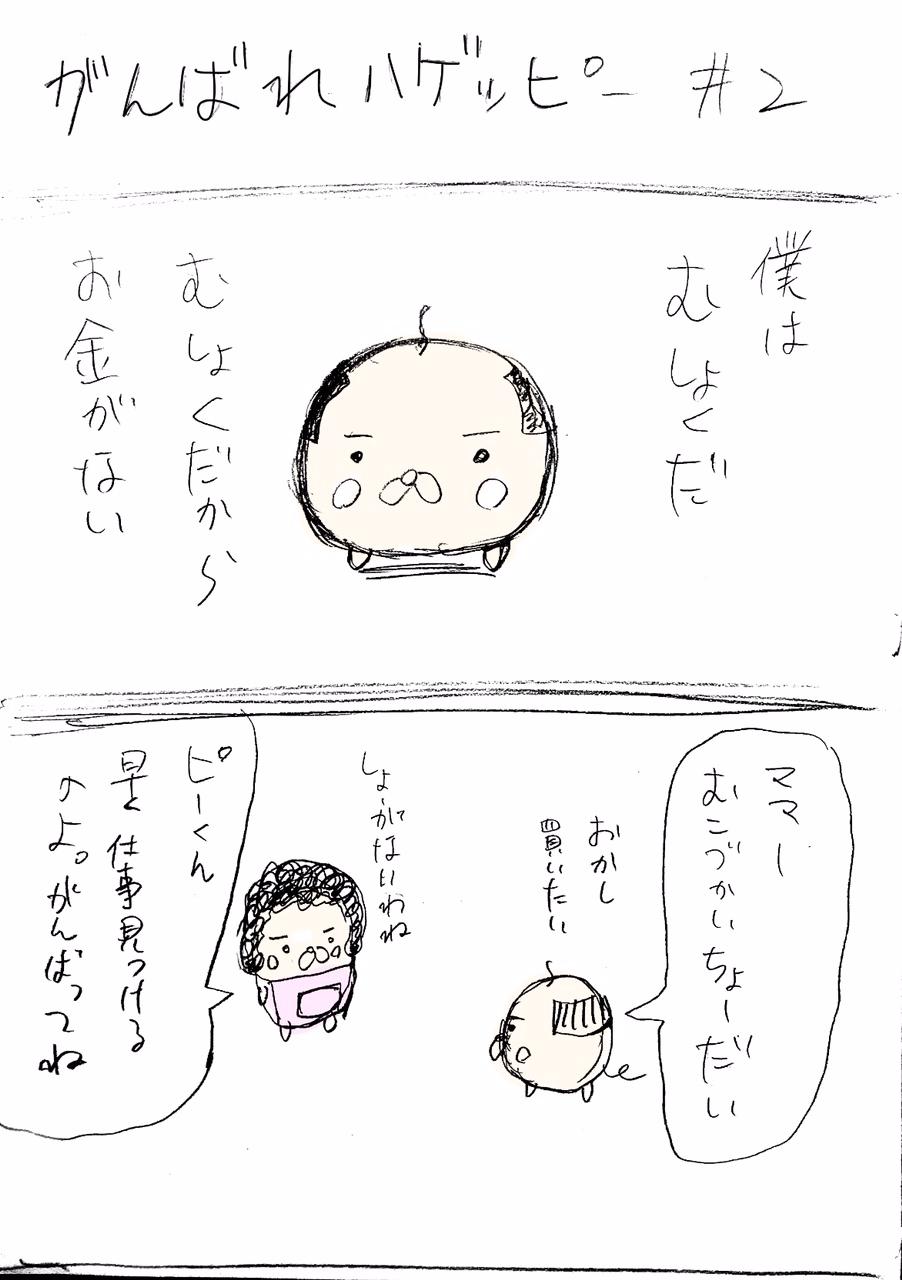 がんばれハゲッピー #2
僕は
むしょくだ
むしょくだから
お金がない
ママー
むこづかいちょーだい
おかし
買いたい
しょーがないわね
ピーくん
早く仕事見つける
のよ。がんばってね